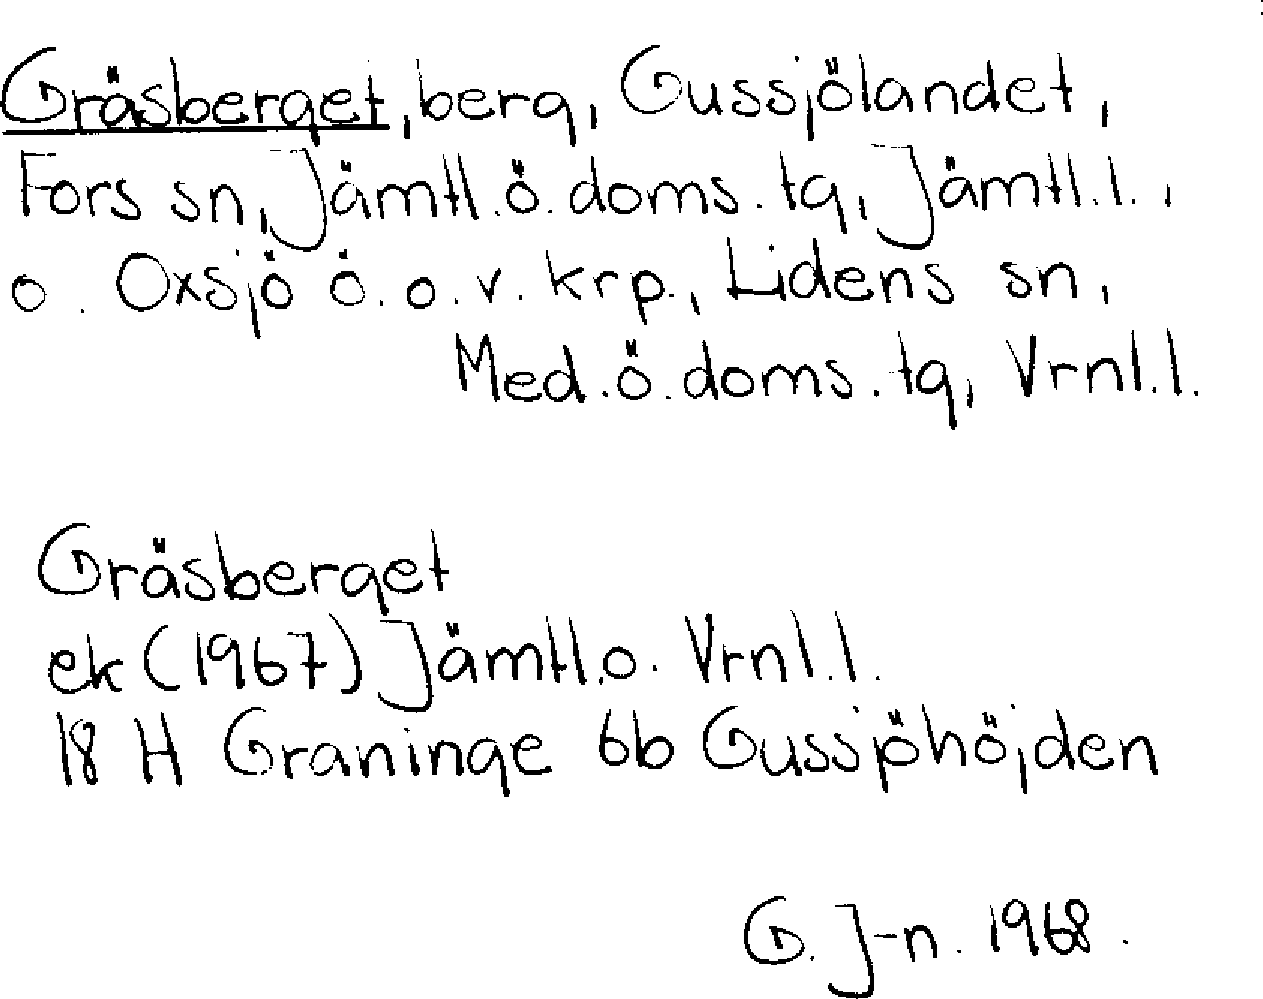 Gräsberget, berg, Gussjölandet,
Fors sn, Jämtl.ö.doms.tg, Jämtl.l.,
o. Oxsjö ö.o.v. krp., Lidens sn,
Med.ö.doms.tg, Vrnl.l.
Gräsberget
ek (1967) Jämtl.o. Vrnl.l.
18 H Graninge 6b Gussjöhöjden
G. J-n. 1968.